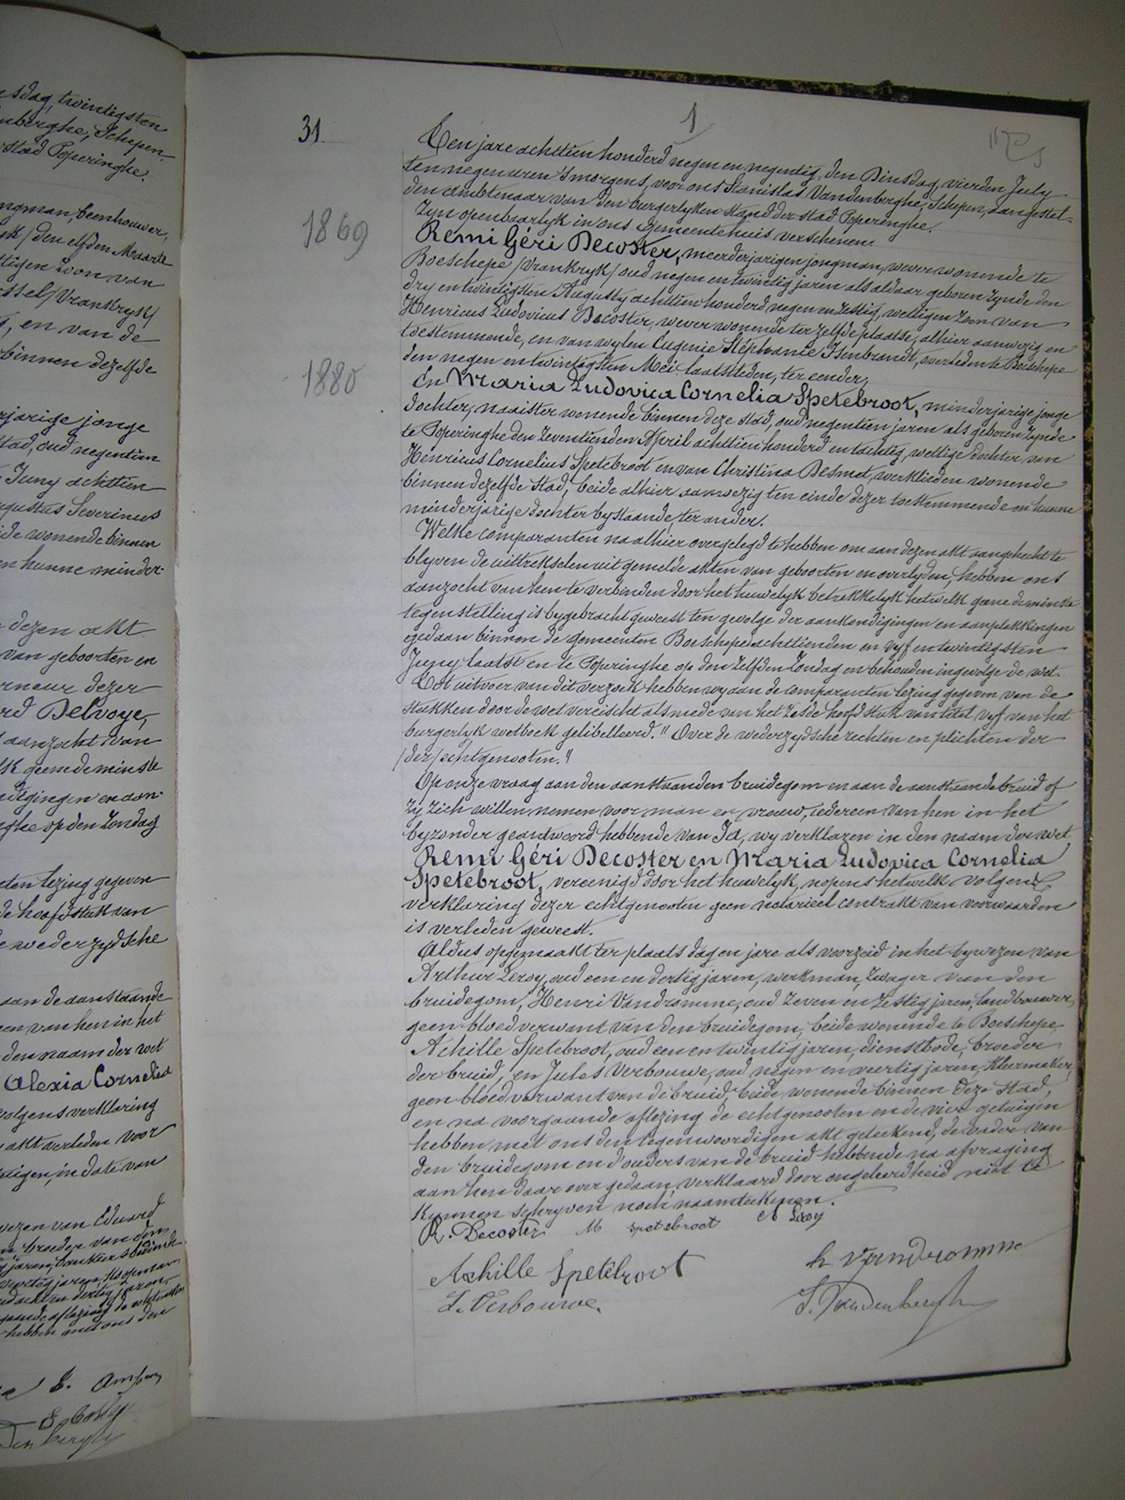 esdag, twintigsten
nberghe, Schepen
stad Poperinghe.
ngman, beenhouwer,
den elfden Maarte
tigen zoon van
ssel / Vrankryk /
, en van de
binnen dezelfde
rjarige jonge
stad, oud negentien
Juny achttien
gustus Severinus
ide wonende binnen
en hunne minder-
dezen akt
van geboorten en
rneur dezer
rd Delvoye,
aanzocht van
lk geene de minste
digingen en aan-
ghe op den Zondag
cten lezing gegeven
de hoofdstuk van
de wederzydsche
aan de aanstaande
een van hen in het
den naam der wet
Alexia Cornelia
volgens verklaring
akt verleden voor
uigen, in date van
wezen van Eduard
broeder van den
hebben met ons den
31.
1
1869
1880
Ten jare achttien honderd negen en negentig, den Dinsdag, vierden July
ten negen uren 's morgens, voor ons Stanislas Vandenberghe, Schepen, aangestel-
den ambtenaar van den burgerlyken stand der stad Poperinghe.
Zyn openbaarlyk in ons gemeentehuis verschenen
Remi Géri Decoster, meerderjarigen jongman, wever wonende te
Boeschepe / Vrankryk / oud negen en twintig jaren als aldaar geboren zynde den
dry en twintigsten Augusty achttien honderd negen en zestig, wettigen zoon van
Henricus Ludovicus Decoster, wever wonende ter zelfde plaatse, alhier aanwezig en
toestemmende, en van wylen Eugenie Stéphanie Isenbrandt, overleden te Boeschepe
den negen en twintigsten Mei laatstleden, ter eender,
En Maria Ludovica Cornelia Spetebroot, minderjarige jonge
dochter, naaister wonende binnen deze stad, oud negentien jaren als geboren zynde
te Poperinghe den zeventienden April achttien honderd en tachtig, wettige dochter van
Henricus Cornelius Spetebroot en van Christina Desmet, werklieden wonende
binnen dezelfde stad, beide alhier aanwezig ten einde dezer toestemmende en hunne
minderjarige dochter bystaande, ter ander.
Welke comparanten na alhier overgelegd te hebben om aan dezen akt aangehecht te
blyven de uittrekselen uit gemelde akten van geboorten en overlyden, hebben ons
aanzocht van hen te verbinden door het huwelyk betrekkelyk hetwelk geene de minste
tegenstelling is bygebracht geweest ten gevolge der aankondigingen en aanplakkingen
gedaan binnen de gemeenten Boeschepe achttienden en vyf en twintigsten
Juny laatst en te Poperinghe op den zelfden Zondag en behouden ingevolge de wet.
Tot uitvoer van dit verzoek hebben wy aan de comparanten lezing gegeven van de
stukken door de wet vereischt alsmede van het zesde hoofdstuk van titel vyf van het
burgerlyk wetboek gelibelleerd. " Over de wederzydsche rechten en plichten der
/ der / echtgenooten. "
Op onze vraag aan den aanstaanden bruidegom en aan de aanstaande bruid of
zy zich willen nemen voor man en vrouw, iedereen van hen in het
byzonder geantwoord hebbende van Ja, wy verklaren in den naam der wet
Remi Géri Decoster en Maria Ludovica Cornelia
Spetebroot, vereenigd door het huwelyk, nopens hetwelk volgens
verklaring dezer echtgenooten geen notarieel contrakt van voorwaarden
is verleden geweest.
Aldus opgemaakt ter plaats dag en jare als voorzeid in het bywezen van
Arthur Leroy, oud een en dertig jaren, werkman, zwager van den
bruidegom, Henri Vandromme, oud zeven en zestig jaren, landbouwer,
geen bloedverwant van den bruidegom, beide wonende te Boeschepe,
Achille Spetebroot, oud een en twintig jaren, dienstbode, broeder
der bruid, en Jules Verbouwe, oud negen en veertig jaren, kleermaker,
geen bloedverwant van de bruid, beide wonende binnen deze stad,
en na voorgaande aflezing de echtgenooten en de vier getuigen
hebben met ons den tegenwoordigen akt geteekend, de vader van
den bruidegom en d'ouders van de bruid hebbende na afvraging
aan hen daar over gedaan, verklaard door ongeleerdheid niet te
kunnen schryven noch naamteekenen.
R. Decoster M spetebroot A Leroy
Achille Spetebroot h Vandromme
J. Verbouwe. S. Vandenberghe